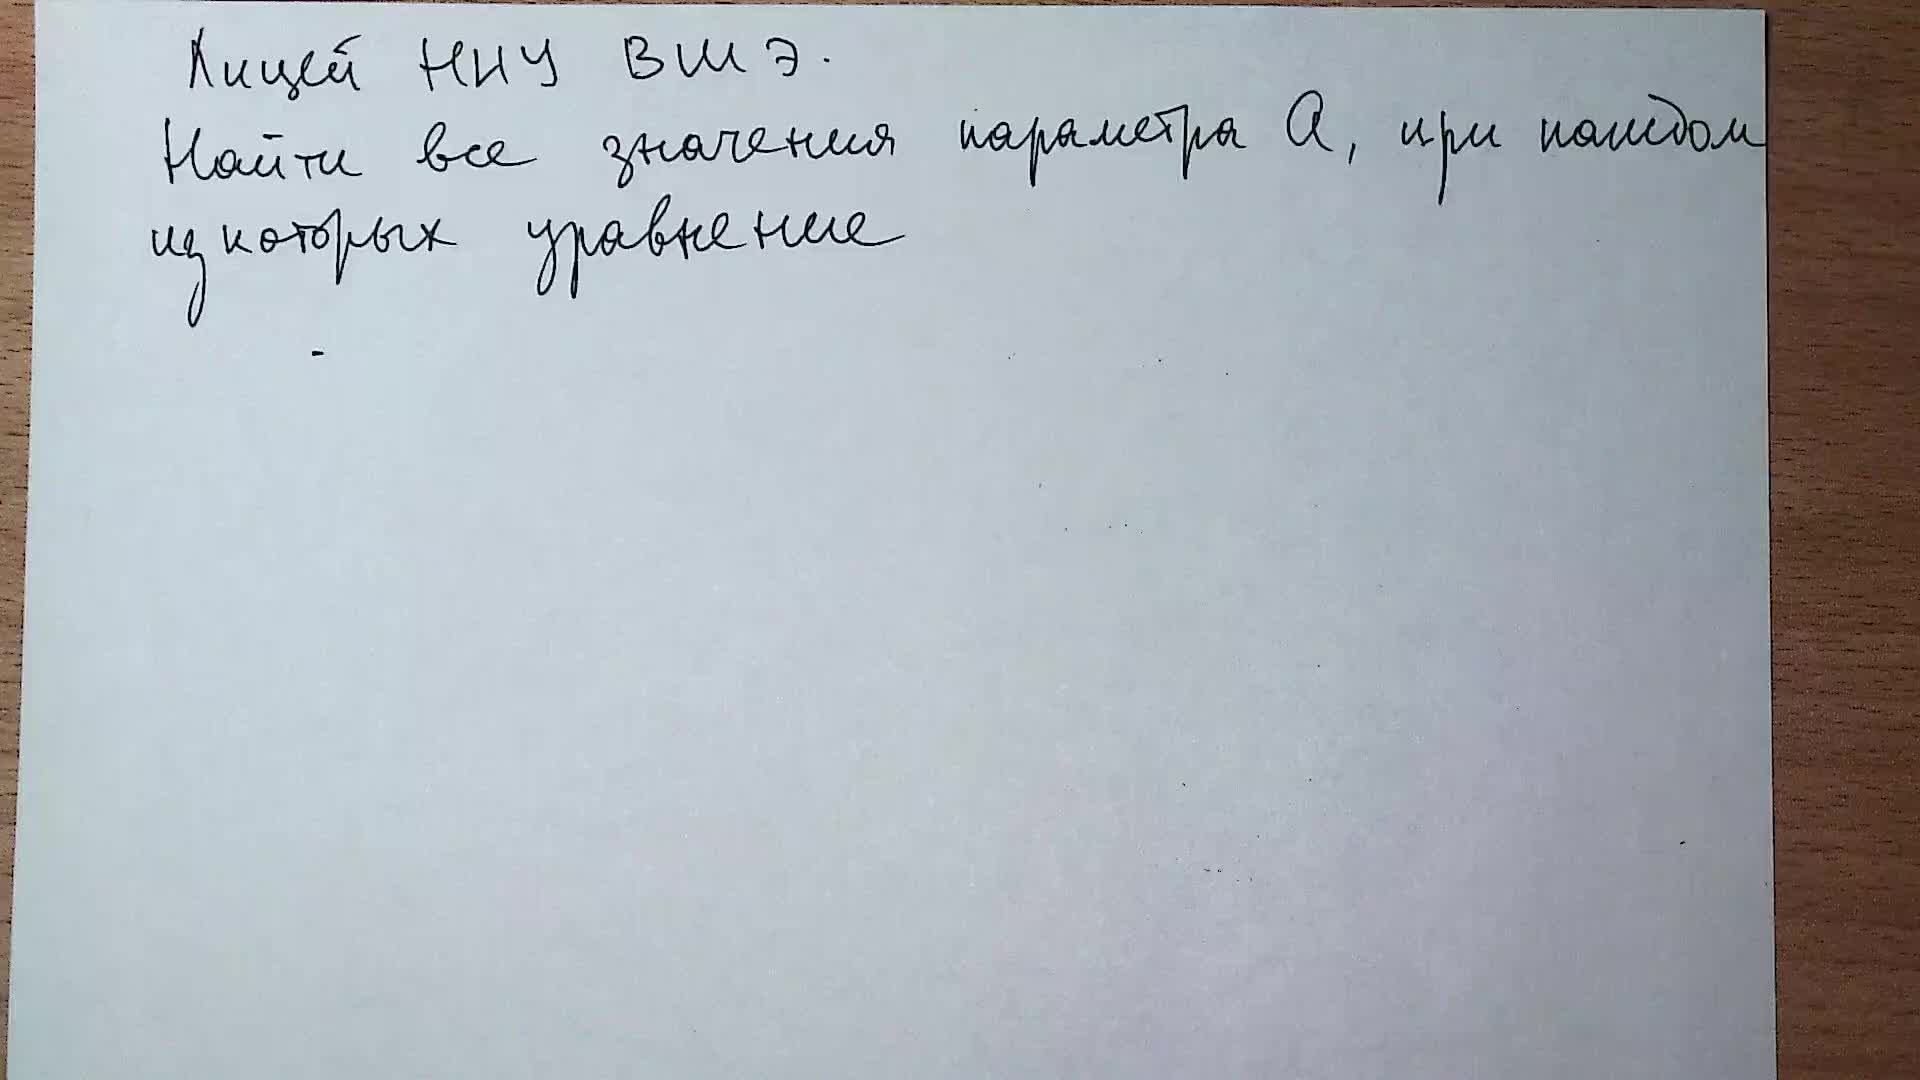 Лицей НИУ ВШЭ.
Найти все значения параметра a, при каждом
из которых уравнение